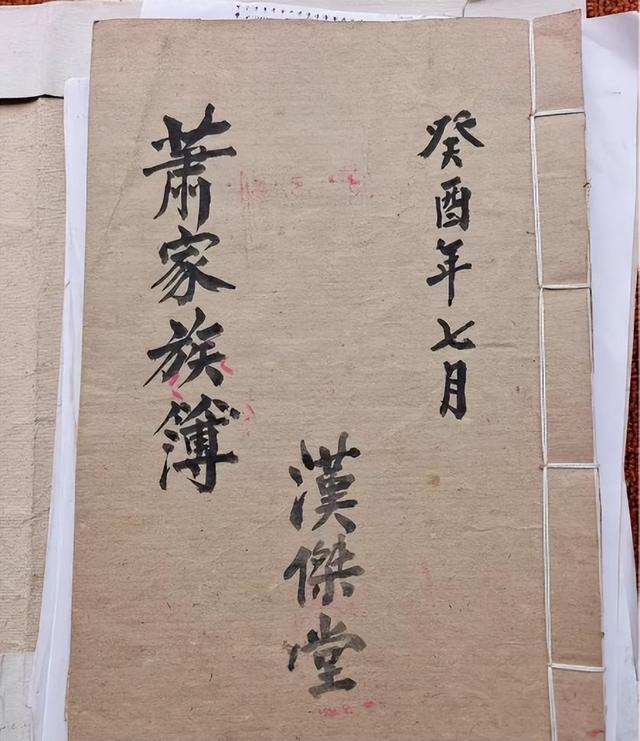 癸酉年七月
漢傑堂
蕭家族簿